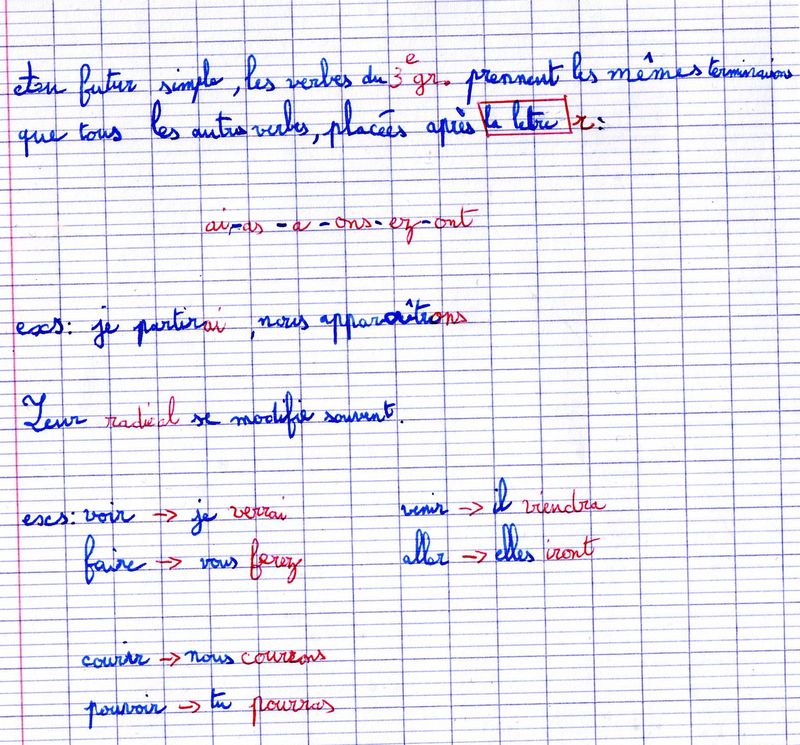 Au futur simple, les verbes du 3e gr. prennent les mêmes terminaisons
que tous les autres verbes, placées après la lettre r :
ai - as - a - ons - ez - ont
exs : je partirai, nous apparaîtrons
Leur radical se modifie souvent.
exs : voir → je verrai venir → il viendra
faire → vous ferez aller → elles iront
courir → nous courrons
pouvoir → tu pourras